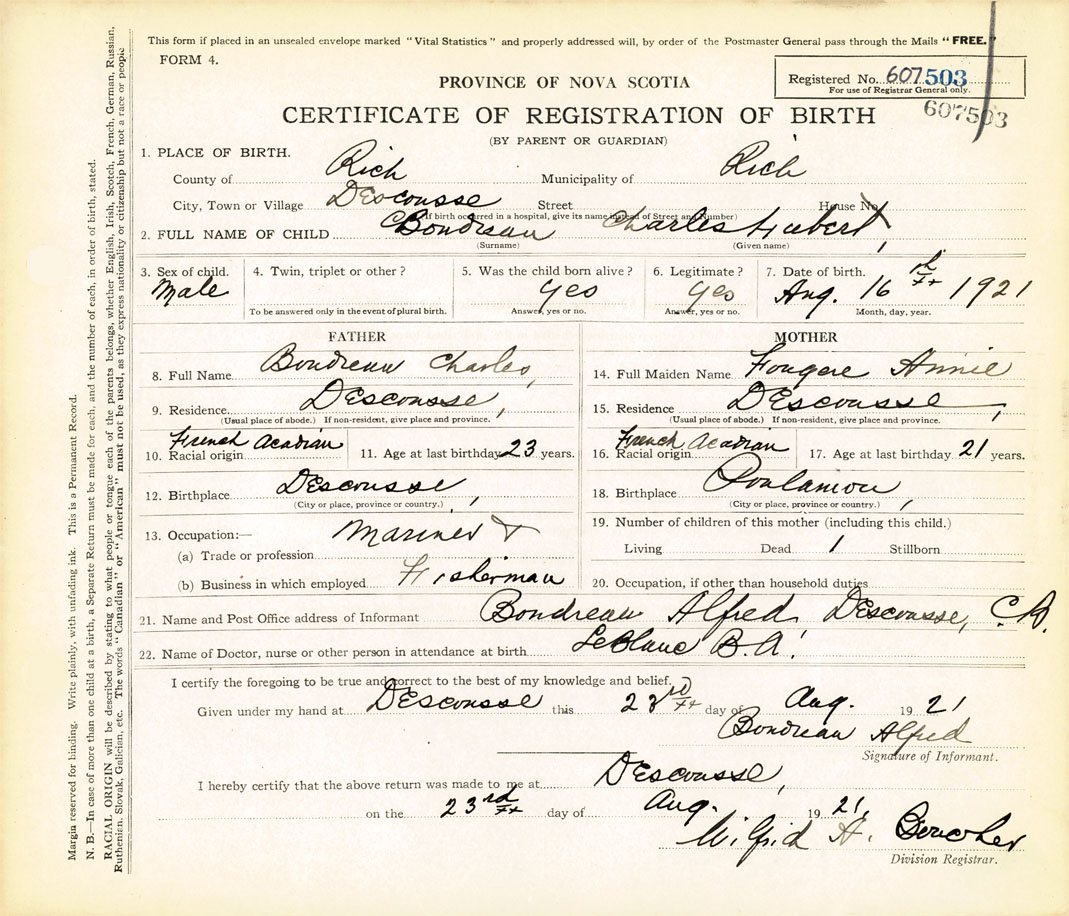 This form if placed in an unsealed envelope marked "Vital Statistics" and properly addressed will, by order of the Postmaster General pass through the Mails "FREE."
FORM 4.
Registered No. 607503
For use of Registrar General only.
607503
PROVINCE OF NOVA SCOTIA
CERTIFICATE OF REGISTRATION OF BIRTH
(BY PARENT OR GUARDIAN)
1. PLACE OF BIRTH.
County of Rich Municipality of Rich
City, Town or Village Descousse Street House No.
(If birth occurred in a hospital, give its name instead of Street and Number)
2. FULL NAME OF CHILD Boudreau Charles Hubert
(Surname) (Given name)
3. Sex of child. 4. Twin, triplet or other? 5. Was the child born alive? 6. Legitimate? 7. Date of birth.
Male yes yes Aug. 16th 1921
To be answered only in the event of plural birth. Answer, yes or no. Answer, yes or no. Month, day, year.
FATHER MOTHER
8. Full Name Boudreau Charles, 14. Full Maiden Name Fougere Annie
9. Residence Descousse, 15. Residence Descousse,
(Usual place of abode.) If non-resident, give place and province. (Usual place of abode.) If non-resident, give place and province.
10. Racial origin French Acadian 11. Age at last birthday 23 years. 16. Racial origin French Acadian 17. Age at last birthday 21 years.
12. Birthplace Descousse, 18. Birthplace Poulamon,
(City or place, province or country.) (City or place, province or country.)
13. Occupation:— Mariner & 19. Number of children of this mother (including this child.)
(a) Trade or profession Living Dead 1 Stillborn
(b) Business in which employed Fisherman 20. Occupation, if other than household duties
21. Name and Post Office address of Informant Boudreau Alfred Descousse, C.B.
22. Name of Doctor, nurse or other person in attendance at birth LeBlanc B.A.
I certify the foregoing to be true and correct to the best of my knowledge and belief.
Given under my hand at Descousse this 23rd day of Aug. 1921
Boudreau Alfred
Signature of Informant.
I hereby certify that the above return was made to me at Descousse,
on the 23rd day of Aug. 1921
Wilfrid A. Boucher
Division Registrar.
Margin reserved for binding. Write plainly, with unfading ink. This is a Permanent Record.
N. B.—In case of more than one child at a birth, a Separate Return must be made for each, and the number of each, in order of birth, stated.
RACIAL ORIGIN will be described by stating to what people or tongue each of the parents belongs, whether English, Irish, Scotch, French, German, Russian,
Ruthenian, Slovak, Galician, etc. The words "Canadian" or "American" must not be used, as they express nationality or citizenship but not a race or people